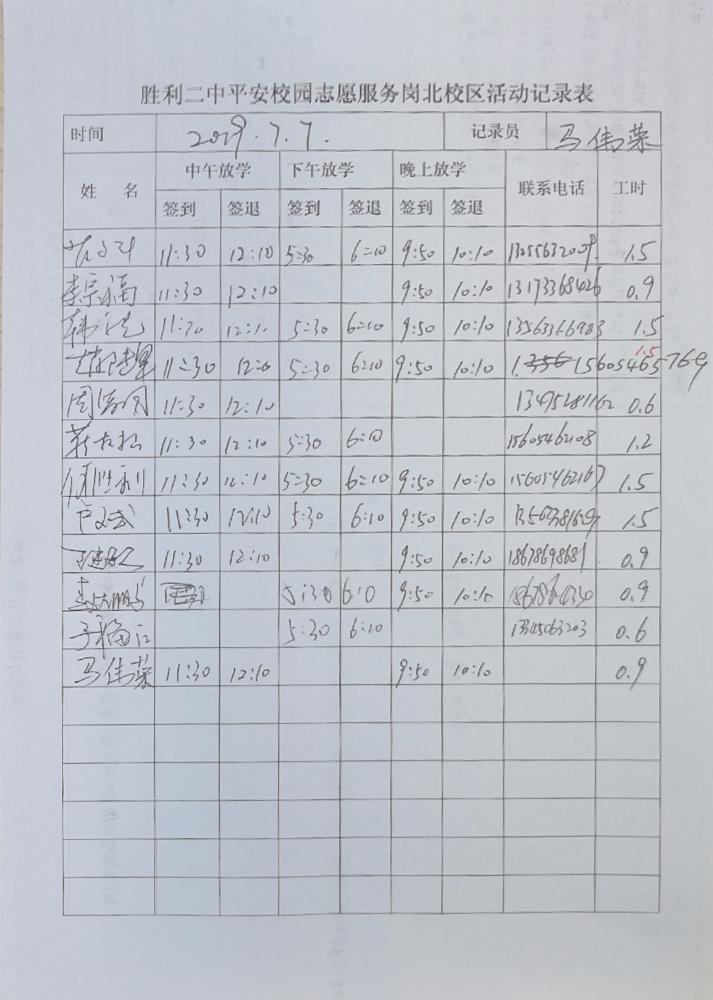 胜利二中平安校园志愿服务岗北校区活动记录表
时间 2029.7.7. 记录员 马伟荣
姓 名 中午放学 下午放学 晚上放学 联系电话 工时
签到 签退 签到 签退 签到 签退
11:30 12:10 5:30 6:10 9:50 10:10 1.5
李宗福 11:30 12:10 9:50 10:10 13173368426 0.9
11:30 12:10 5:30 6:10 9:50 10:10 13563366983 1.5
11:30 5:30 6:10 9:50 10:10 15605465769 1.5
11:30 12:10 13475281162 0.6
11:30 12:10 5:30 6:10 15605462108 1.2
胜利 11:30 12:10 5:30 6:10 9:50 10:10 15605462167 1.5
卢文武 11:30 12:10 5:30 6:10 9:50 10:10 1.5
11:30 12:10 9:50 10:10 18678698681 0.9
5:30 6:10 9:50 10:10 0.9
5:30 6:10 0.6
马伟荣 11:30 12:10 9:50 10:10 0.9